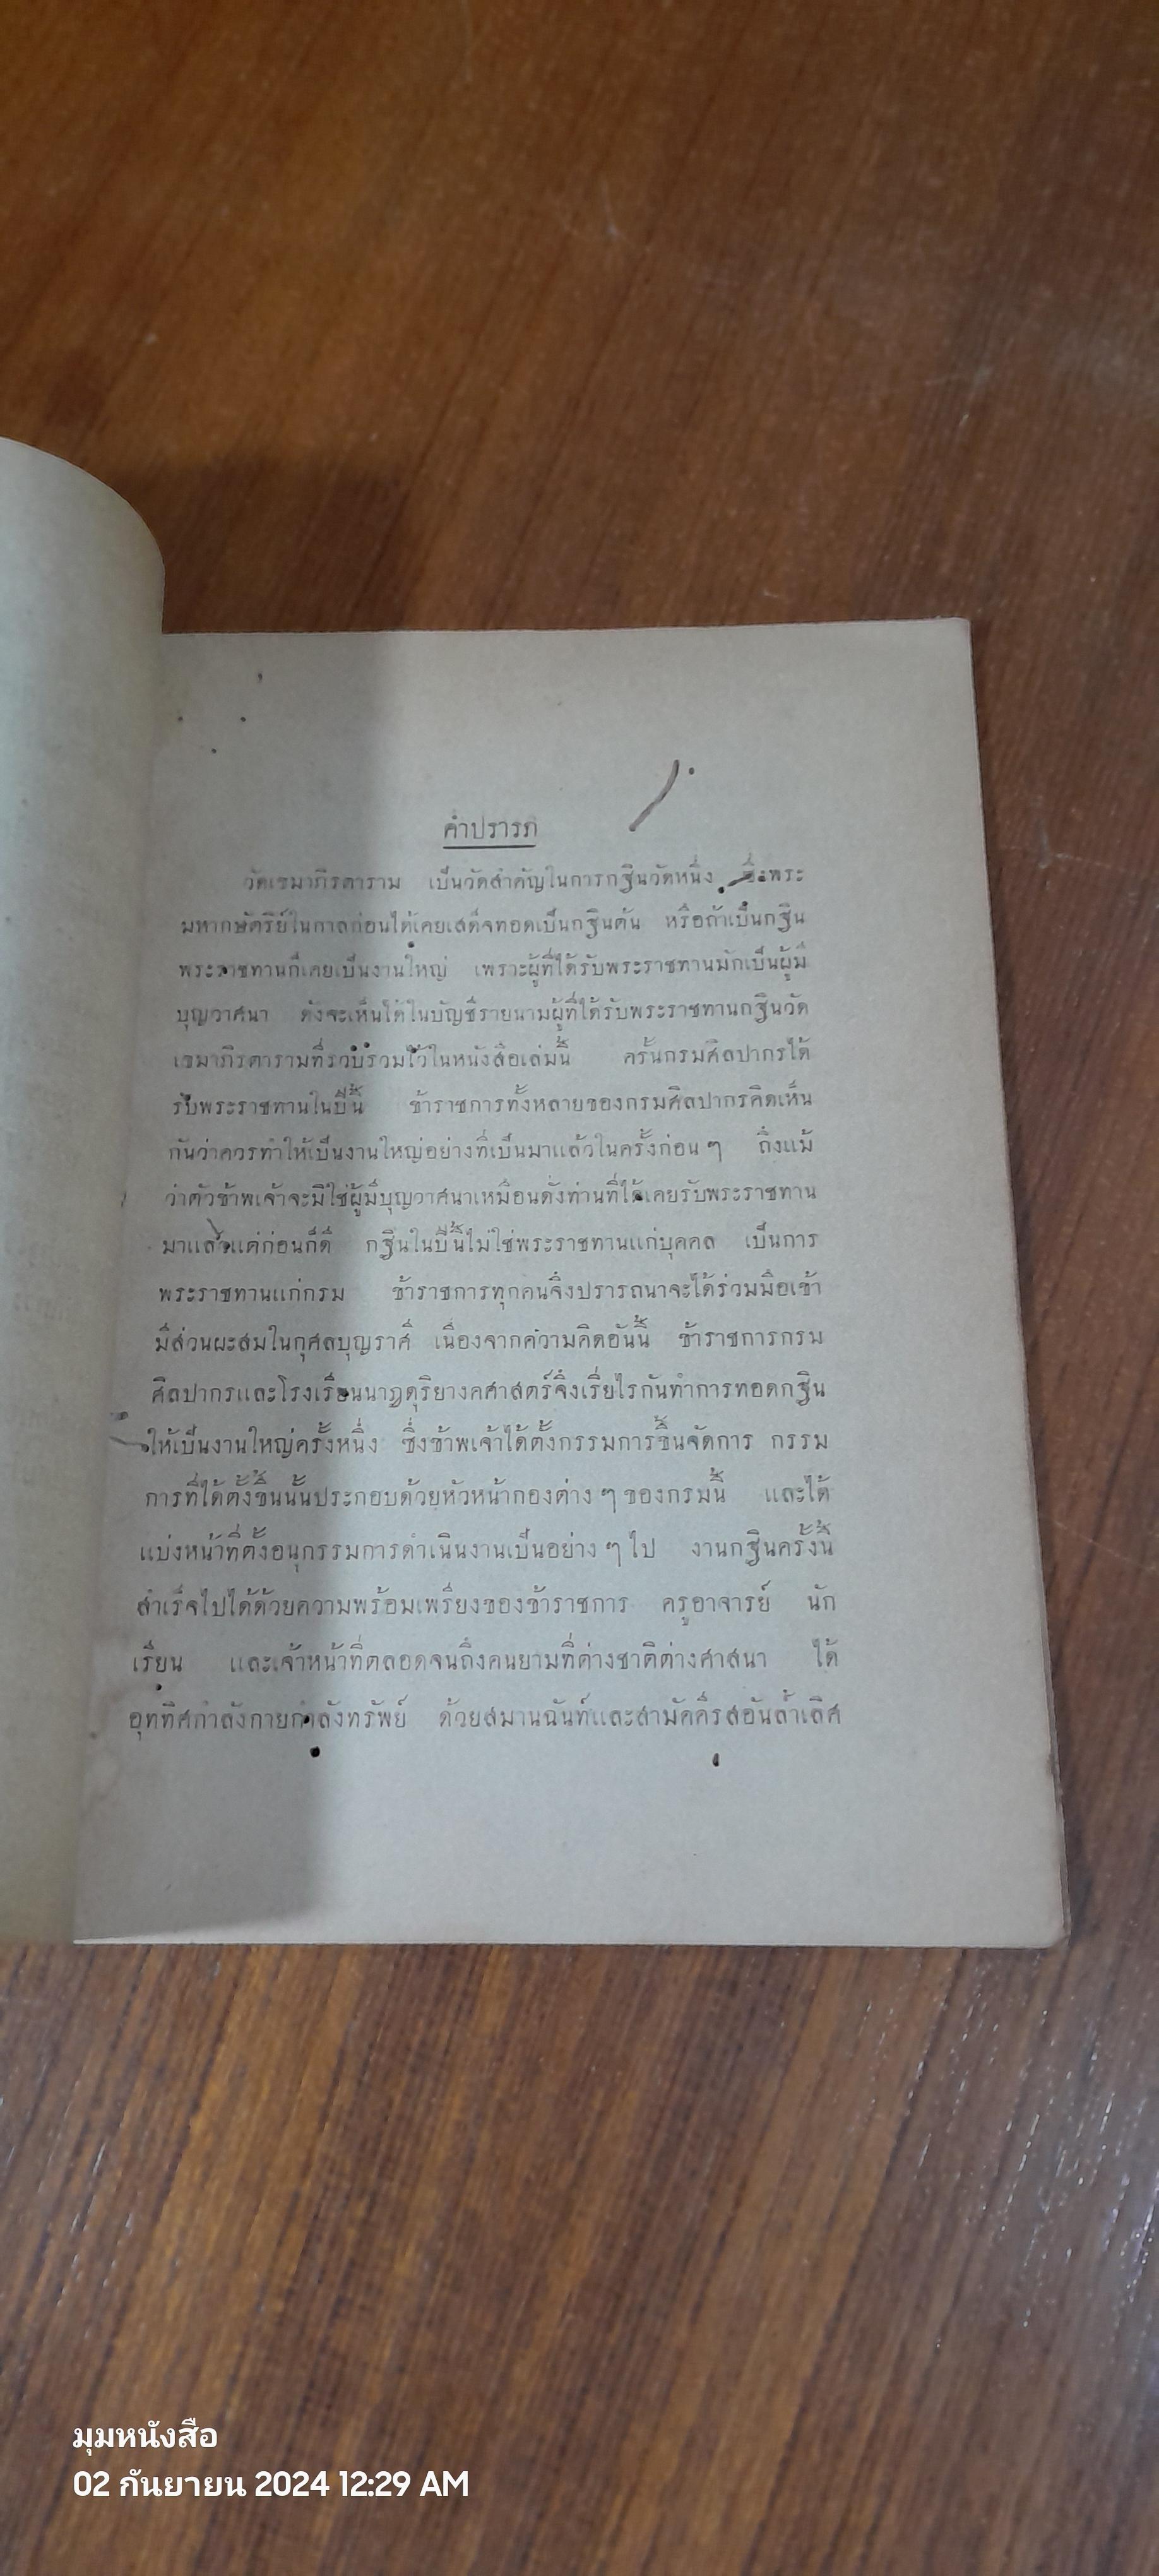 คำปรารภ
วัดเขมาภิรตาราม เป็นวัดสำคัญในการกฐินวัดหนึ่ง ซึ่งพระ
มหากษัตริย์ในกาลก่อนได้เคยเสด็จทอดเป็นกฐินต้น หรือถ้าเป็นกฐิน
พระราชทานก็เคยเป็นงานใหญ่ เพราะผู้ที่ได้รับพระราชทานมักเป็นผู้มี
บุญวาศนา ดังจะเห็นได้ในบัญชีรายนามผู้ที่ได้รับพระราชทานกฐินวัด
เขมาภิรตารามที่รวบรวมไว้ในหนังสือเล่มนี้ ครั้นกรมศิลปากรได้
รับพระราชทานในปีนี้ ข้าราชการทั้งหลายของกรมศิลปากรคิดเห็น
กันว่าควรทำให้เป็นงานใหญ่อย่างที่เป็นมาแล้วในครั้งก่อน ๆ ถึงแม้
ว่าตัวข้าพเจ้าจะมิใช่ผู้มีบุญวาศนาเหมือนดั่งท่านที่ได้เคยรับพระราชทาน
มาแล้วแต่ก่อนก็ดี กฐินในปีนี้ไม่ใช่พระราชทานแก่บุคคล เป็นการ
พระราชทานแก่กรม ข้าราชการทุกคนจึงปรารถนาจะได้ร่วมมือเข้า
มีส่วนผะสมในกุศลบุญราศี เนื่องจากความคิดอันนี้ ข้าราชการกรม
ศิลปากรและโรงเรียนนาฏดุริยางคศาสตร์จึงเรี่ยไรกันทำการทอดกฐิน
ให้เป็นงานใหญ่ครั้งหนึ่ง ซึ่งข้าพเจ้าได้ตั้งกรรมการขึ้นจัดการ กรรม
การที่ได้ตั้งขึ้นนั้นประกอบด้วยหัวหน้ากองต่าง ๆ ของกรมนี้ และได้
แบ่งหน้าที่ตั้งอนุกรรมการดำเนินงานเป็นอย่าง ๆ ไป งานกฐินครั้งนี้
สำเร็จไปได้ด้วยความพร้อมเพรียงของข้าราชการ ครูอาจารย์ นัก
เรียน และเจ้าหน้าที่ตลอดจนถึงคนยามที่ต่างชาติต่างศาสนา ได้
อุททิศกำลังกายกำลังทรัพย์ ด้วยสมานฉันท์และสามัคคีรสอันล้ำเลิศ
มุมหนังสือ
02 กันยายน 2024 12:29 AM